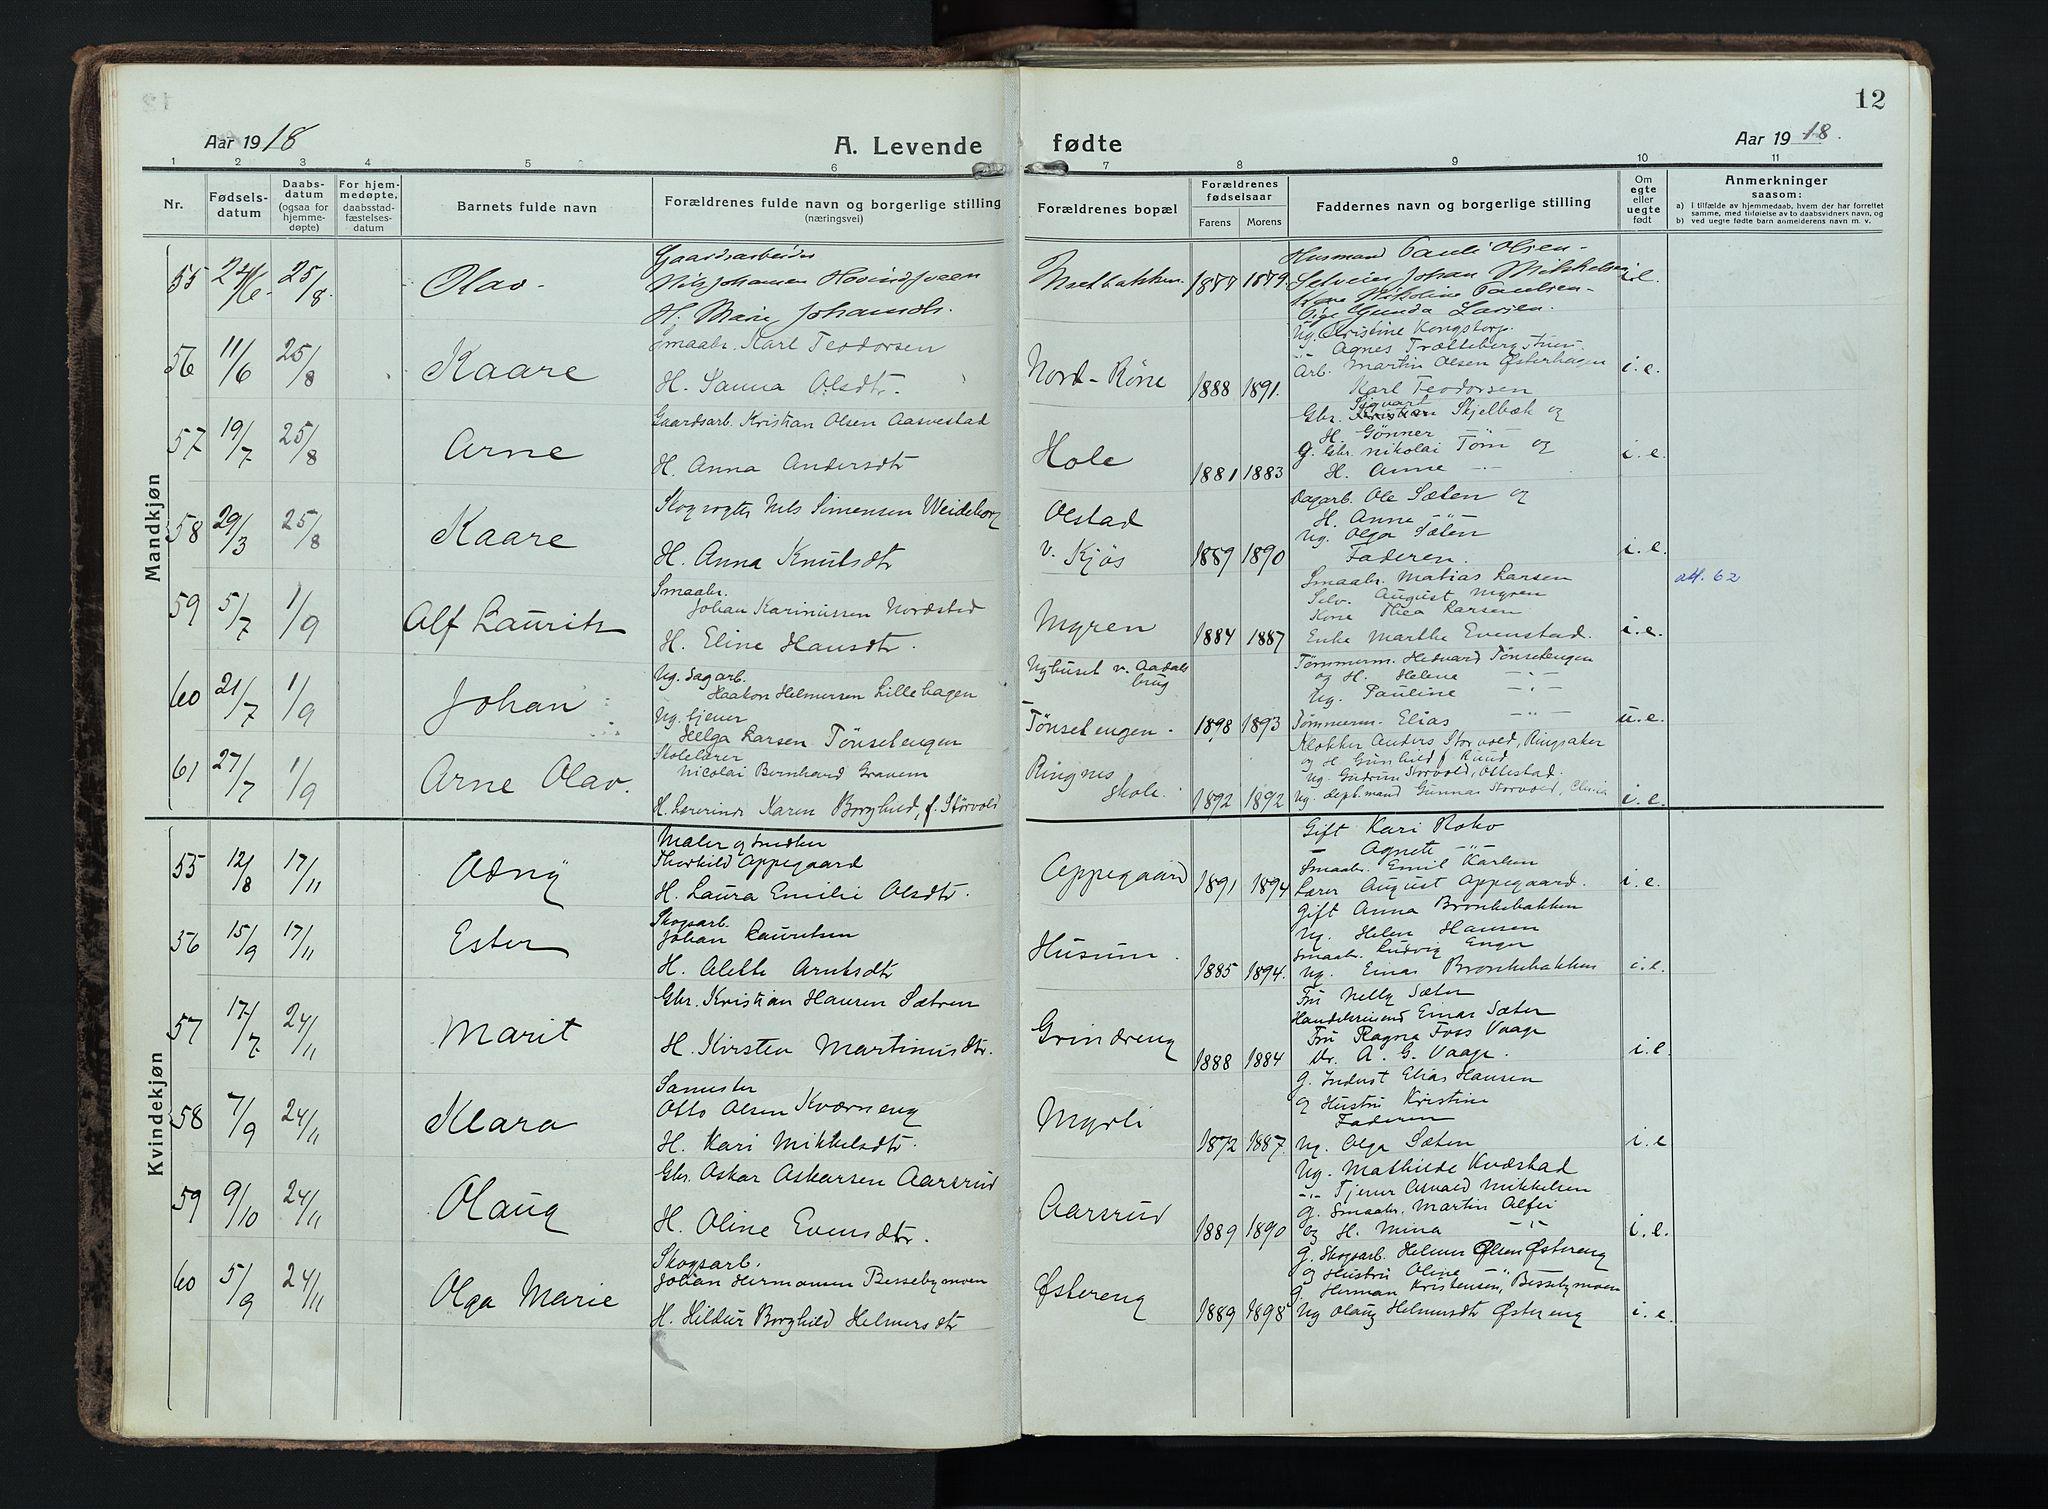 12
Aar 1918
A. Levende fødte
Aar 1918.
1 2 3 4 5 6 7 8 9 10 11
Nr.
Fødsels-
datum
Daabs-
datum
(ogsaa for
hjemme-
døpte)
For hjem-
medøpte,
daabsstad-
fæstelses-
datum
Barnets fulde navn
Forældrenes fulde navn og borgerlige stilling
(næringsvei)
Forældrenes bopæl
Forældrenes
fødselsaar
Farens Morens
Faddernes navn og borgerlige stilling
Om
egte
eller
uegte
født
Anmerkninger
saasom:
a) I tilfælde av hjemmedaab, hvem der har forrettet
samme, med tilføielse av to daabsvidners navn, og
b) ved uegte fødte barn anmelderens navn m. v.
Mandkjøn
55 24/6. 25/8 Olav.
Gaardsarbeider
Nils Johansen
H. Marie Johansdtr.
1877 1879
Husmand Pauli Olsen
Johan Mikkelsen
Kone Nikoline Paulsen
Pige Gunda Larsen.
i.e.
56 11/6 25/8 Kaare
Smaabr. Karl Teodorsen
H. Sanna Olsdtr.
Nord-Røne
1888 1891.
Ug. Kristine Kongstorp.
Agnes
Arb. Martin Olsen Østerhagen
Karl Teodorsen
i.e.
57 19/7 25/8 Arne
Gaardsarb. Kristian Olsen Aasvestad
H. Anna Andersdtr
Hole
1881 1883
Sigvart
Gbr. Skjelbæk og
H. Gønner
G. Gbr. Nikolai Tøm og
H. Anne -"-
i.e.
58 29/3 25/8 Kaare
Skogvogter Nils Simensen Weideborg
H. Anna Knutsdtr
Olstad
v. Kjøs
1889 1890
Dagarb. Ole Sæten og
H. Anne -"-
Ug. Olga Sæten
Faderen.
i.e.
59 5/7 1/9 Alf Lauritz
Smaabr.
Johan Karinussen Nordstad
H. Eline Hansdtr.
Myren
1884 1887
Smaabr. Matias Larsen
Selv. August Myren
Kone Thea Larsen
Enke Marthe Evenstad.
i.e.
att. 62
60 21/7 1/9 Johan
Ug. Sagarb.
Haakon Helmersen Lillehagen
Ug. tjener
Helga Larsen Tønsetengen
Nyhuset v. Aadals
brug
Tønsetengen.
1898 1893
Tømmerm. Hedvard Tønsetengen
og H. Helene -"-
Ug. Pauline -"-
Tømmerm. Elias -"-
u.e.
61 27/7 1/9 Arne Olav.
Skolelærer
Nicolai Bernhard Gravem
H. Lærerinde Karen Borghild, f. Storvold
Ringnes
skole.
1892 1892
Klokker Anders Storvold, Ringsaker
og H. Gunhild f. Rund
Ug. Gudrun Storvold, Ottestad.
Ug. Gunnar Storvold,
i.e.
Kvindekjøn
55 12/8 17/11 Odny
Maler og snedker
Thorhild Oppegaard
H. Laura Emilie Olsdtr.
Oppegaard
1891 1894
Gift Kari Roko
— Agnete -"-
Smaabr. Emil Karlsen
Lærer August Oppegaard.
i.e.
56 15/9 17/11 Ester
Skogsarb.
Johan Lauritsen
H. Olette Arntsdtr
Husum.
1885 1894.
Gift Anna Bronkebakken
Ug. Helen Hansen
Smaabr. Ludvig Enger
Ug. Einar Bronkebakken
i.e.
57 17/7 24/11 Marit
Gbr. Kristian Hansen Sætren
H. Kirsten Martinusdtr.
Grindreng
1888 1884
Fru Nelly Sæter
Handelsreisend Einar Sæter
Fru Ragna Foss Vaage
Dr. A. G. Vaage.
i.e.
58 7/9 24/11 Klara
Sagmester
Otto Olsen Kværneng
H. Kari Mikkelsdtr.
Myrli
1872 1887.
G. Indust Elias Hansen
og Hustru Kristine
Faderen
Ug. Olga Sæten
i.e
59 9/10 24/11 Olaug
Gbr. Oskar Oskarsen Aarsrud
H. Oline Evensdtr.
Aarsrud
1889 1890
Ug. Mathilde Kvæstad
-"- Tjener Osvald Mikkelsen
G. Smaabr. Martin Alfei
og H. Mina -"-
i.e.
60 5/9 24/11 Olga Marie
Skogsarb.
Johan Hermansen Bessebymoen
H. Hildur Borghild Helmersdtr
Østereng
1889 1898
G. Skogsarb. Helmer Olsen Østereng
og Hustru Oline -"-
G. Herman Kristensen, Bessebymoen
Ug Olaug Helmersdtr Østereng
i.e.